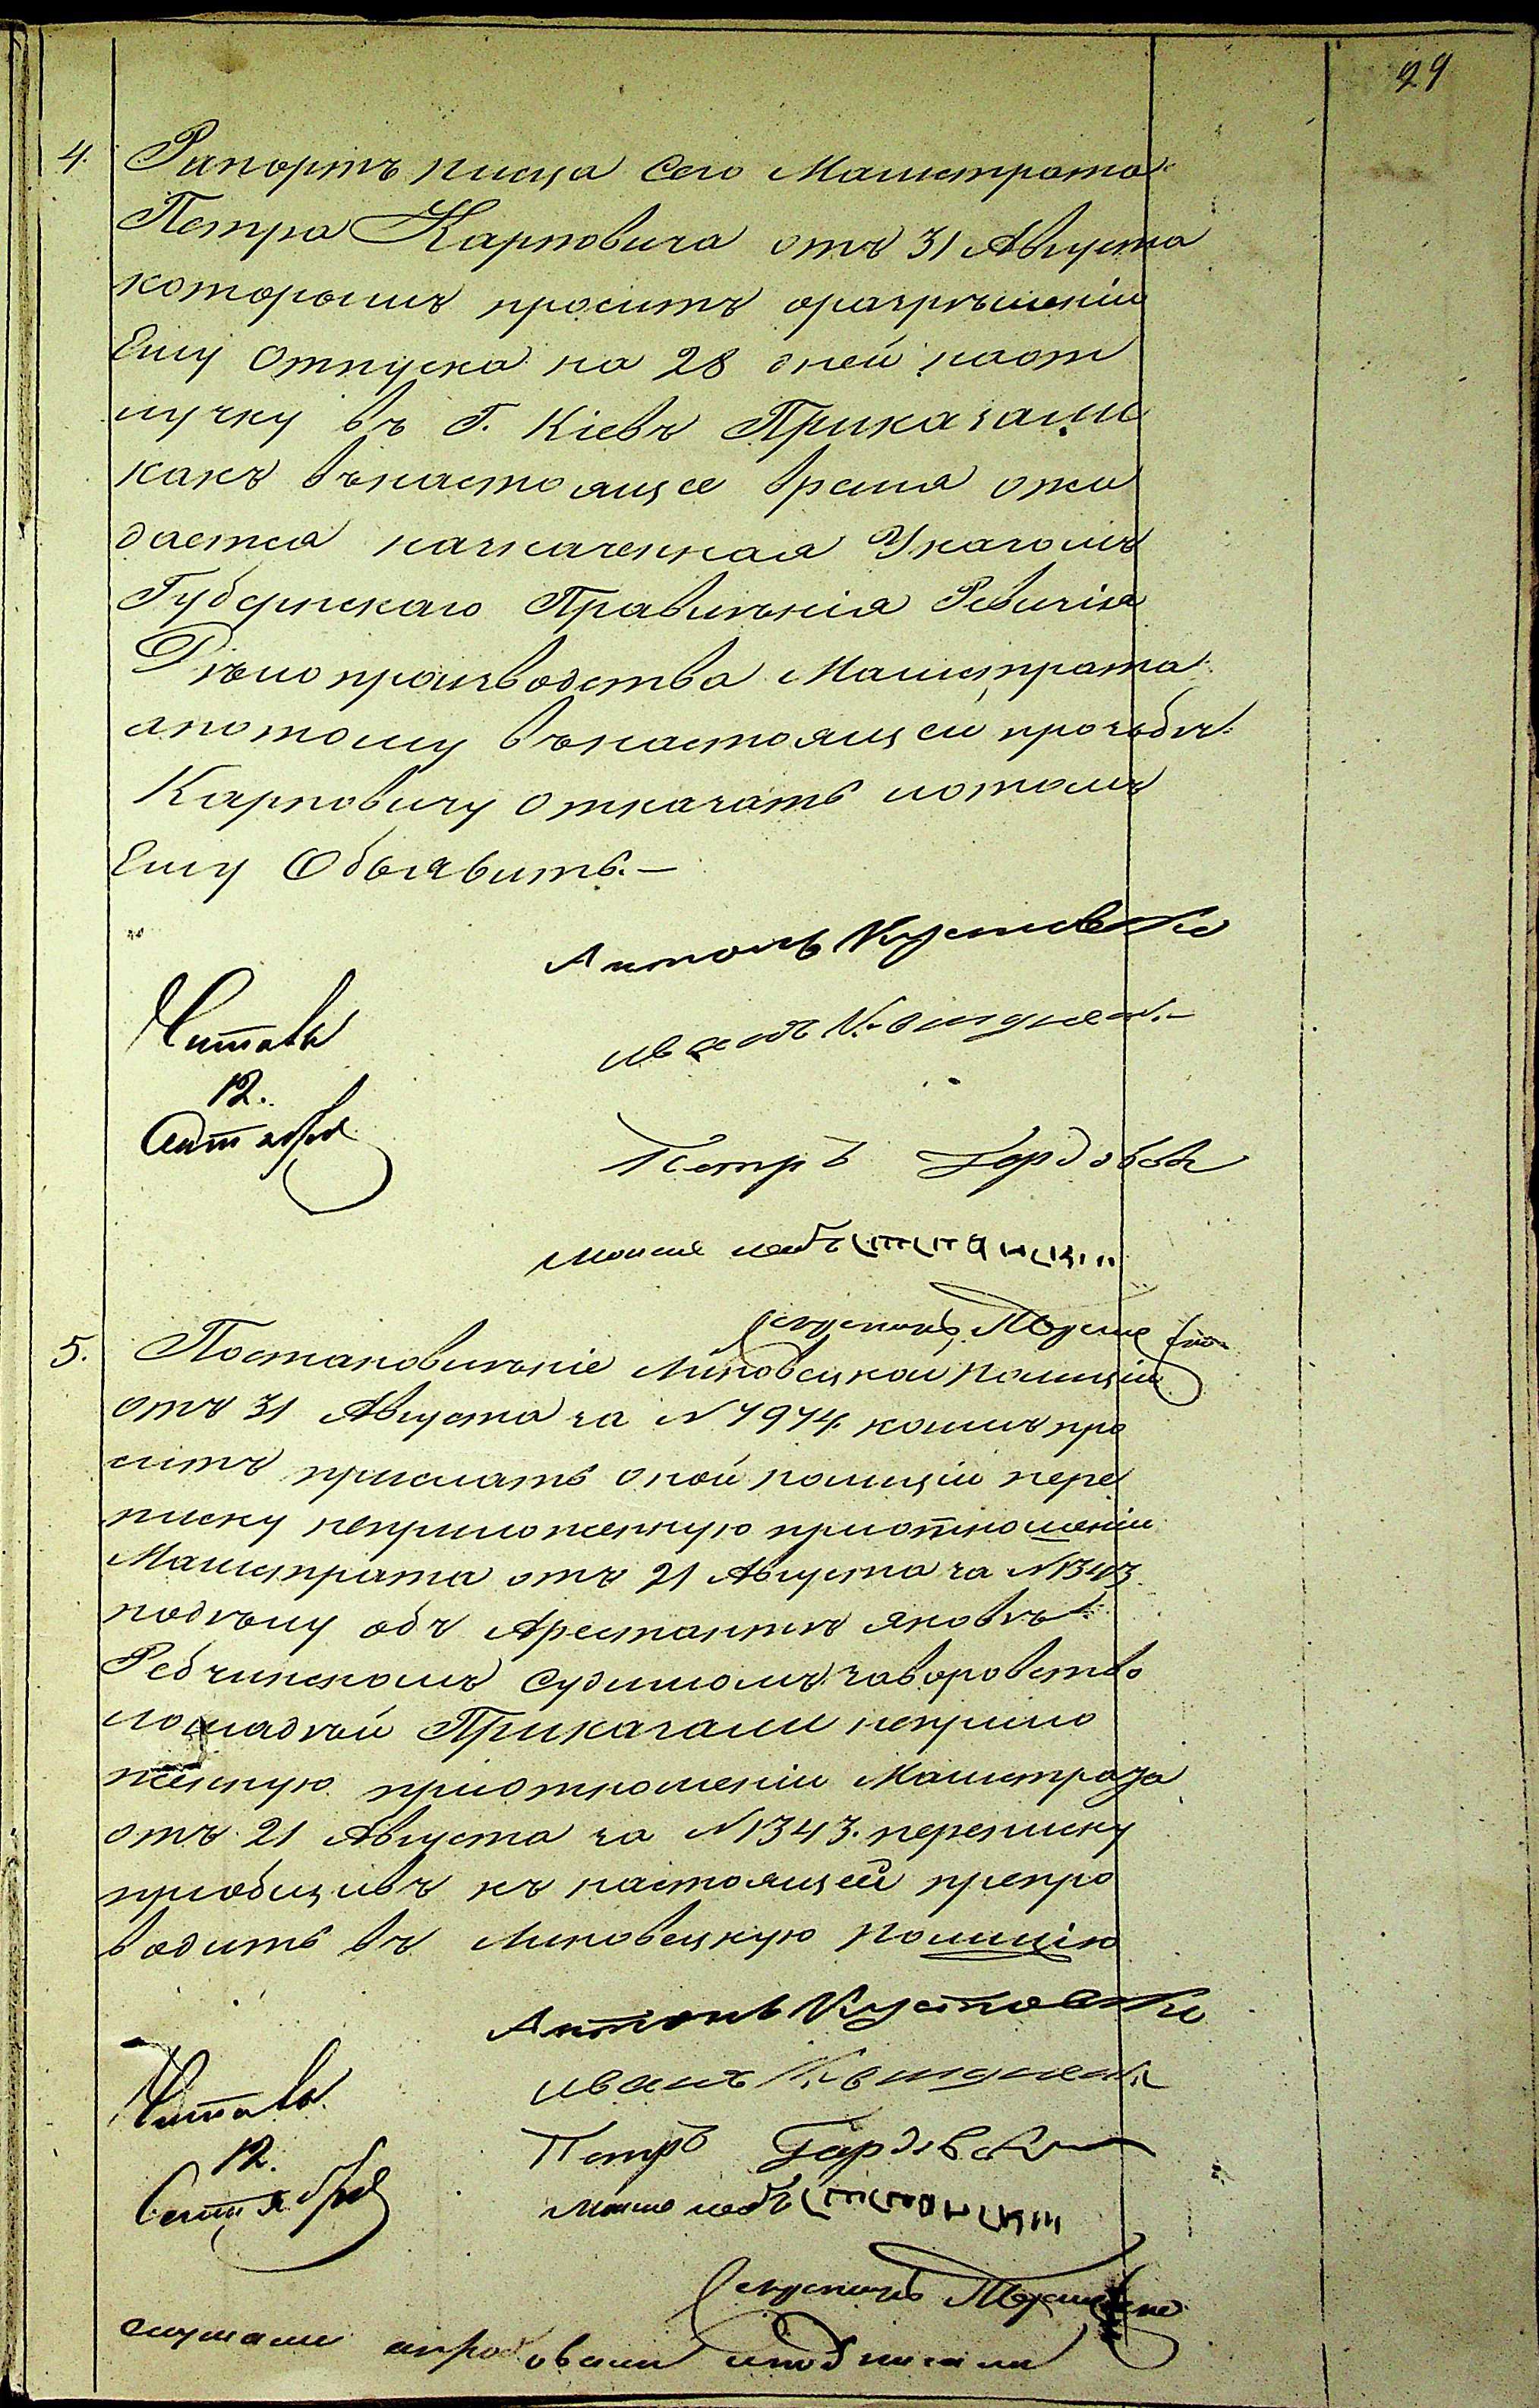 29
4. Рапортъ писца Сего Магистрата
Петра Карповича отъ 31 Августа
которымъ проситъ оразрѣшеніи
Ему Отпуска на 28 дней наот
лучку въ Г. Кіевъ Приказали
какъ внастоящее время ожи
дается назначенная Указомъ
Губернскаго Правленія Ревизія
Дѣлопроизводства Магистрата
апотому внастоящей прозьбѣ
Карповичу отказать ио томъ
Ему Объявить.—
Антонъ
Читалъ
Иванъ
12.
Сентября
Петръ
Секретарь
5. Постановленіе Липовецкой полиціи
отъ 31 Августа за N 7974. коимъ про
ситъ прислать оной полиціи пере
писку неприложенную приотношеніи
Магистрата отъ 21 Августа за N 1343.
подѣлу объ Арестантѣ Яковѣ
Ребчинскомъ Судимомъ заворовство
лошадѣй Приказали неприло
женную приотношеніи Магистрата
отъ 21 Августа за N 1343. переписку
приобщивъ къ настоящей препро
водить въ Липовецкую полицію
Антонъ
Иванъ
Читалъ
12.
Петръ
Сентября
Секретарь
слушали апробовали иподписали